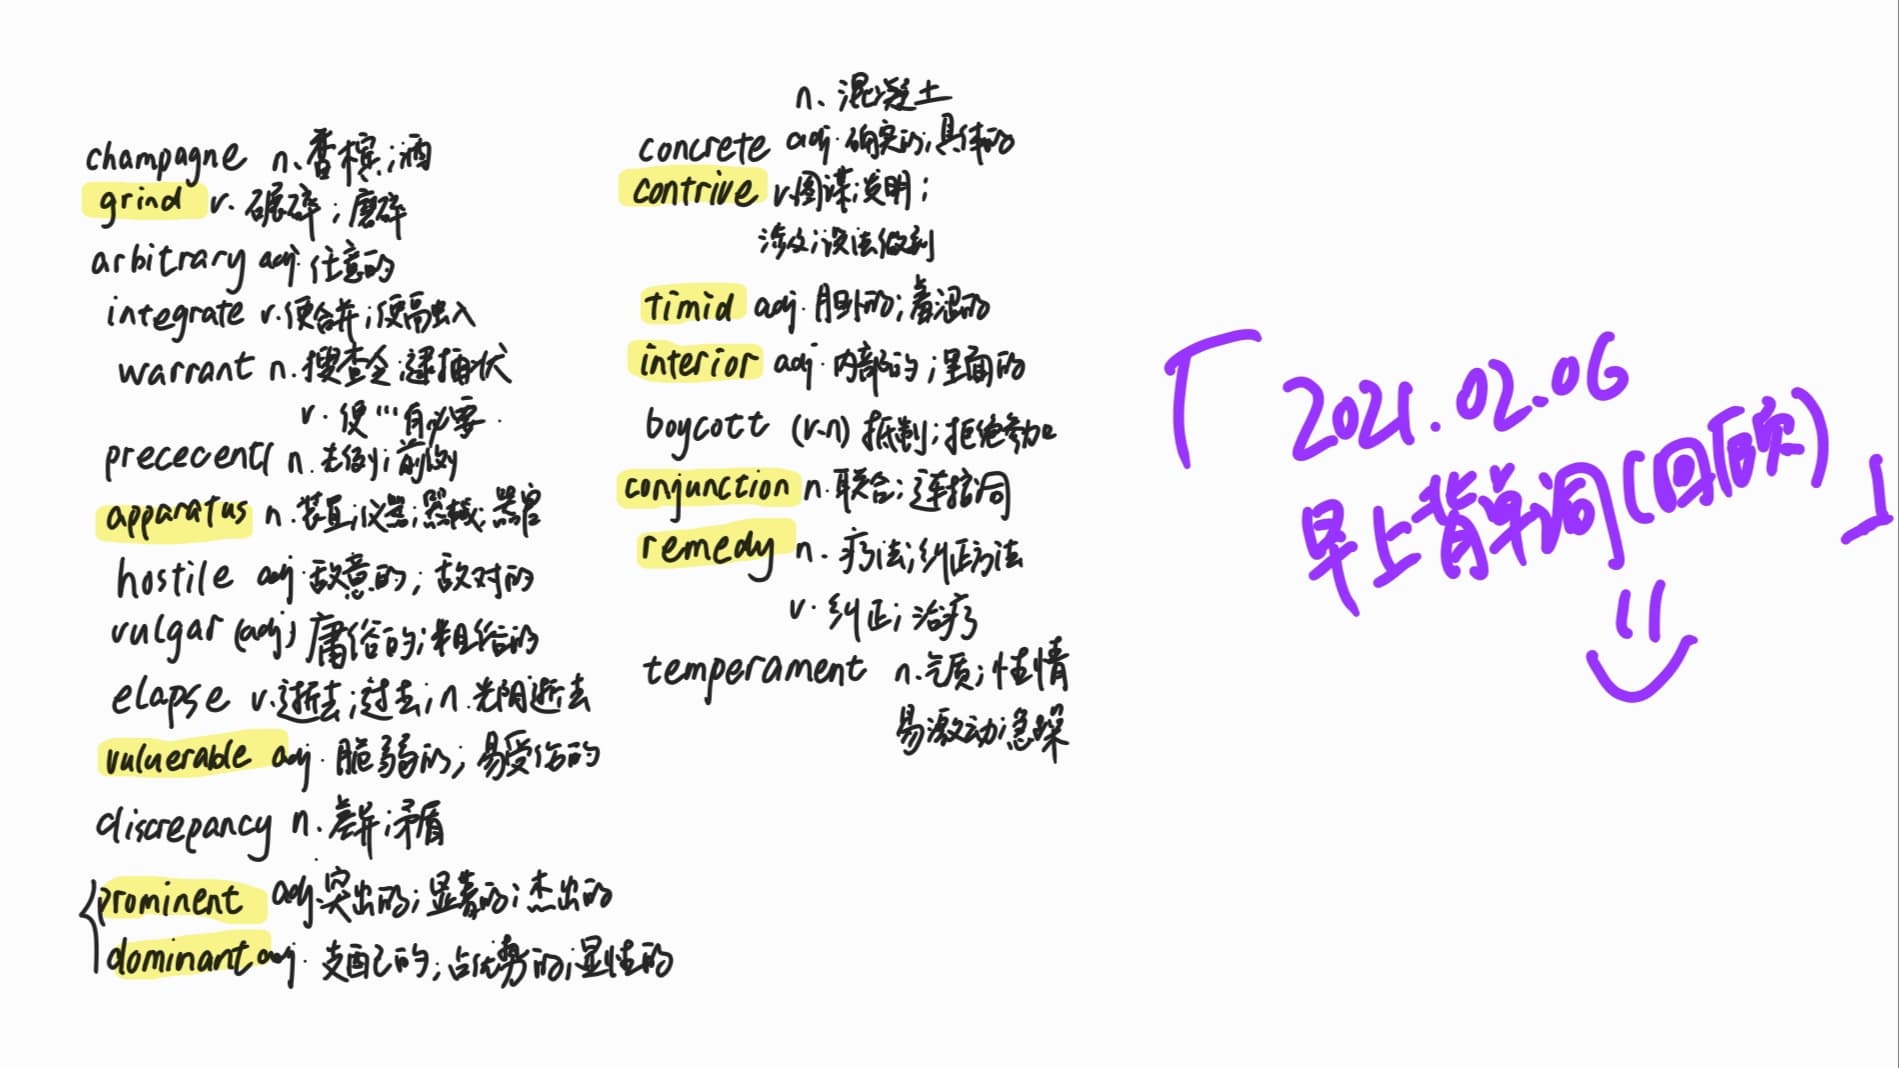 champagne n. 香槟;酒
grind v. 碾碎;磨碎
arbitrary adj. 任意的
integrate v. 使合并;使融入
warrant n. 搜查令;逮捕状
v. 使…有必要.
prececent n. 先例;前例
apparatus n. 装置;仪器;器械;器官
hostile adj. 敌意的;敌对的
vulgar (adj) 庸俗的;粗俗的
elapse v. 逝去;过去;n. 光阴逝去
vuluerable adj. 脆弱的;易受伤的
discrepancy n. 差异;矛盾
prominent adj. 突出的;显著的;杰出的
dominant adj. 支配的;占优势的;显性的
n. 混凝土
concrete adj. 确实的;具体的
contrive v. 图谋;发明;
涉及;设法做到
timid adj. 胆小的;羞涩的
interior adj. 内部的;里面的
boycott (v.n) 抵制;拒绝参加
conjunction n. 联合;连接词
remedy n. 疗法;纠正方法
v. 纠正;治疗
temperament n. 气质;性情
易激动;急躁
「2021.02.06
早上背单词(回顾)」